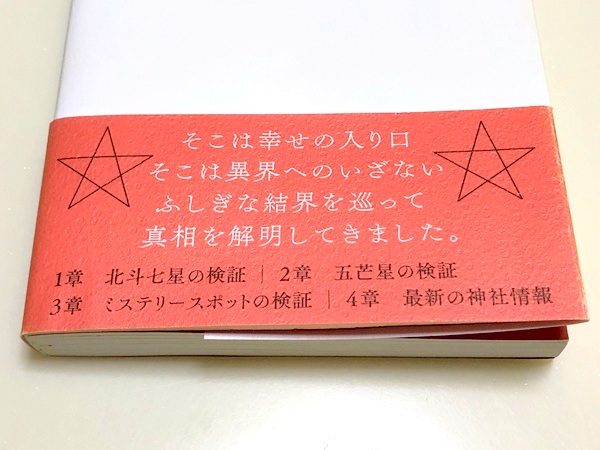 そこは幸せの入り口
そこは異界へのいざない
ふしぎな結界を巡って
真相を解明してきました。
1章 北斗七星の検証｜2章 五芒星の検証
3章 ミステリースポットの検証｜4章 最新の神社情報